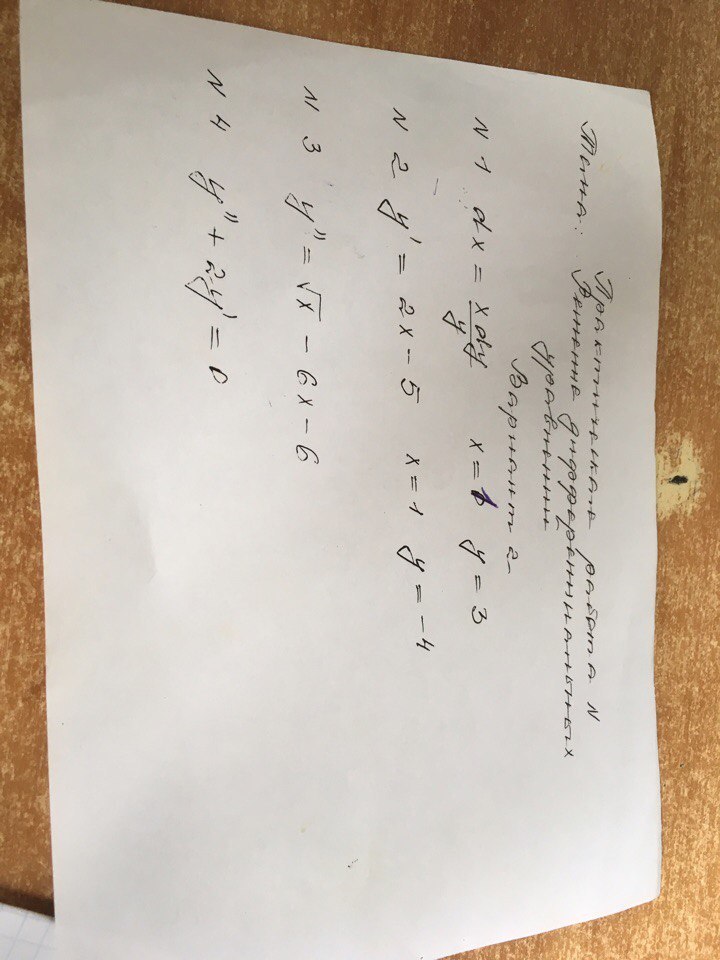 Практическая работа N
Тема: Решение дифференциальных
уравнений
Вариант 2
N 1 dx = xdy/y x = 1 y = 3
N 2 y' = 2x - 5 x = 1 y = -4
N 3 y'' = √x - 6x - 6
N 4 y'' + 2y' = 0